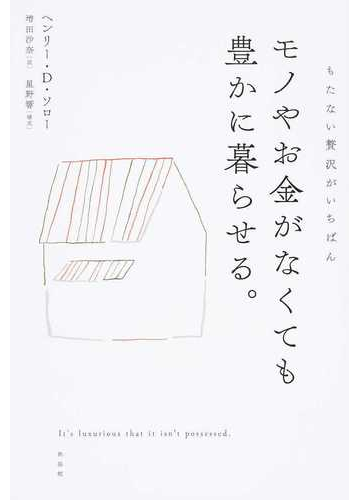 もたない贅沢がいちばん
モノやお金がなくても
豊かに暮らせる。
ヘンリー・D・ソロー
増田沙奈［訳］ 星野響［構成］
It's luxurious that it isn't possessed.
興陽館